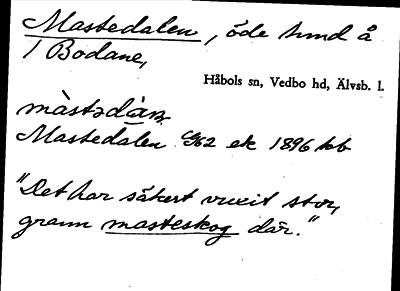 Mastedalen, öde hmd å
1 Bodane,
Håbols sn, Vedbo hd, Älvsb. l.
Mastedalen G62 ek 1896 kb
"Det har säkert vuxit stor,
grann masteskog där."